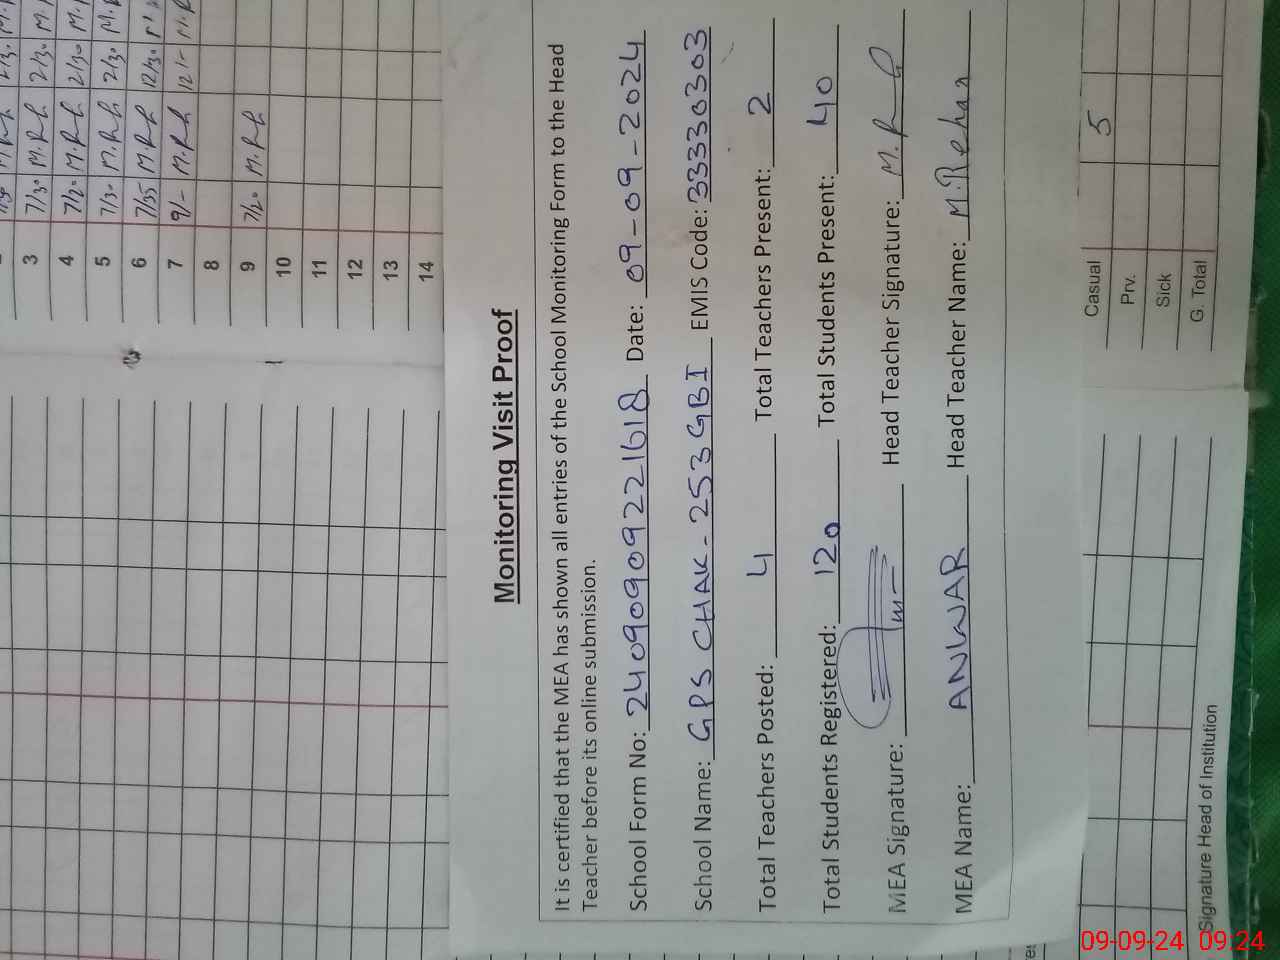 Monitoring Visit Proof
It is certified that the MEA has shown all entries of the School Monitoring Form to the Head
Teacher before its online submission.
School Form No: 24090909221618 Date: 09-09-2024
School Name: GPS CHAK-253GBI EMIS Code: 33330303
Total Teachers Posted: 4 Total Teachers Present: 2
Total Students Registered: 120 Total Students Present: 40
MEA Signature: Head Teacher Signature: M.R
MEA Name: ANWAR Head Teacher Name: M.Rehan
3 7/30 2/30
4 7/20 2/30
5 7/30 2/30
6 7/35 12/30
7 9/- 12/-
8
9 7/20
10
11
12
13
14
Casual 5
Prv.
Sick
G. Total
Signature Head of Institution
09-09-24 09:24